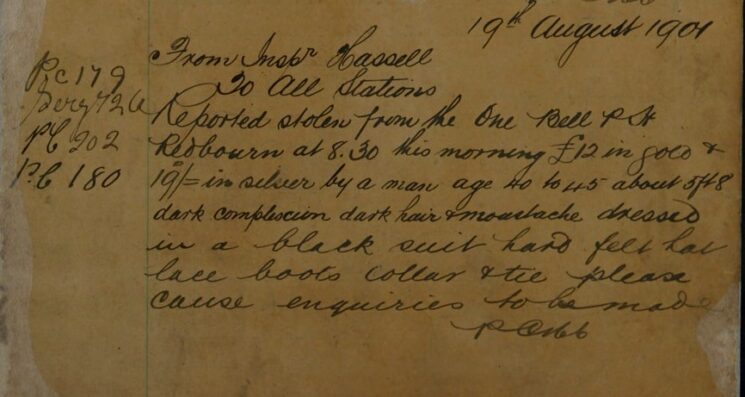 19th August 1901
From Inspr Hassell
To All Stations
PC 179
Serg 72
PC 202
PC 180
Reported stolen from the One Bell P.H
Redbourn at 8.30 this morning £12 in gold &
19/= in silver by a man age 40 to 45 about 5ft8
dark complexion dark hair & moustache dressed
in a black suit hard felt hat
lace boots collar & tie please
cause enquiries to be made